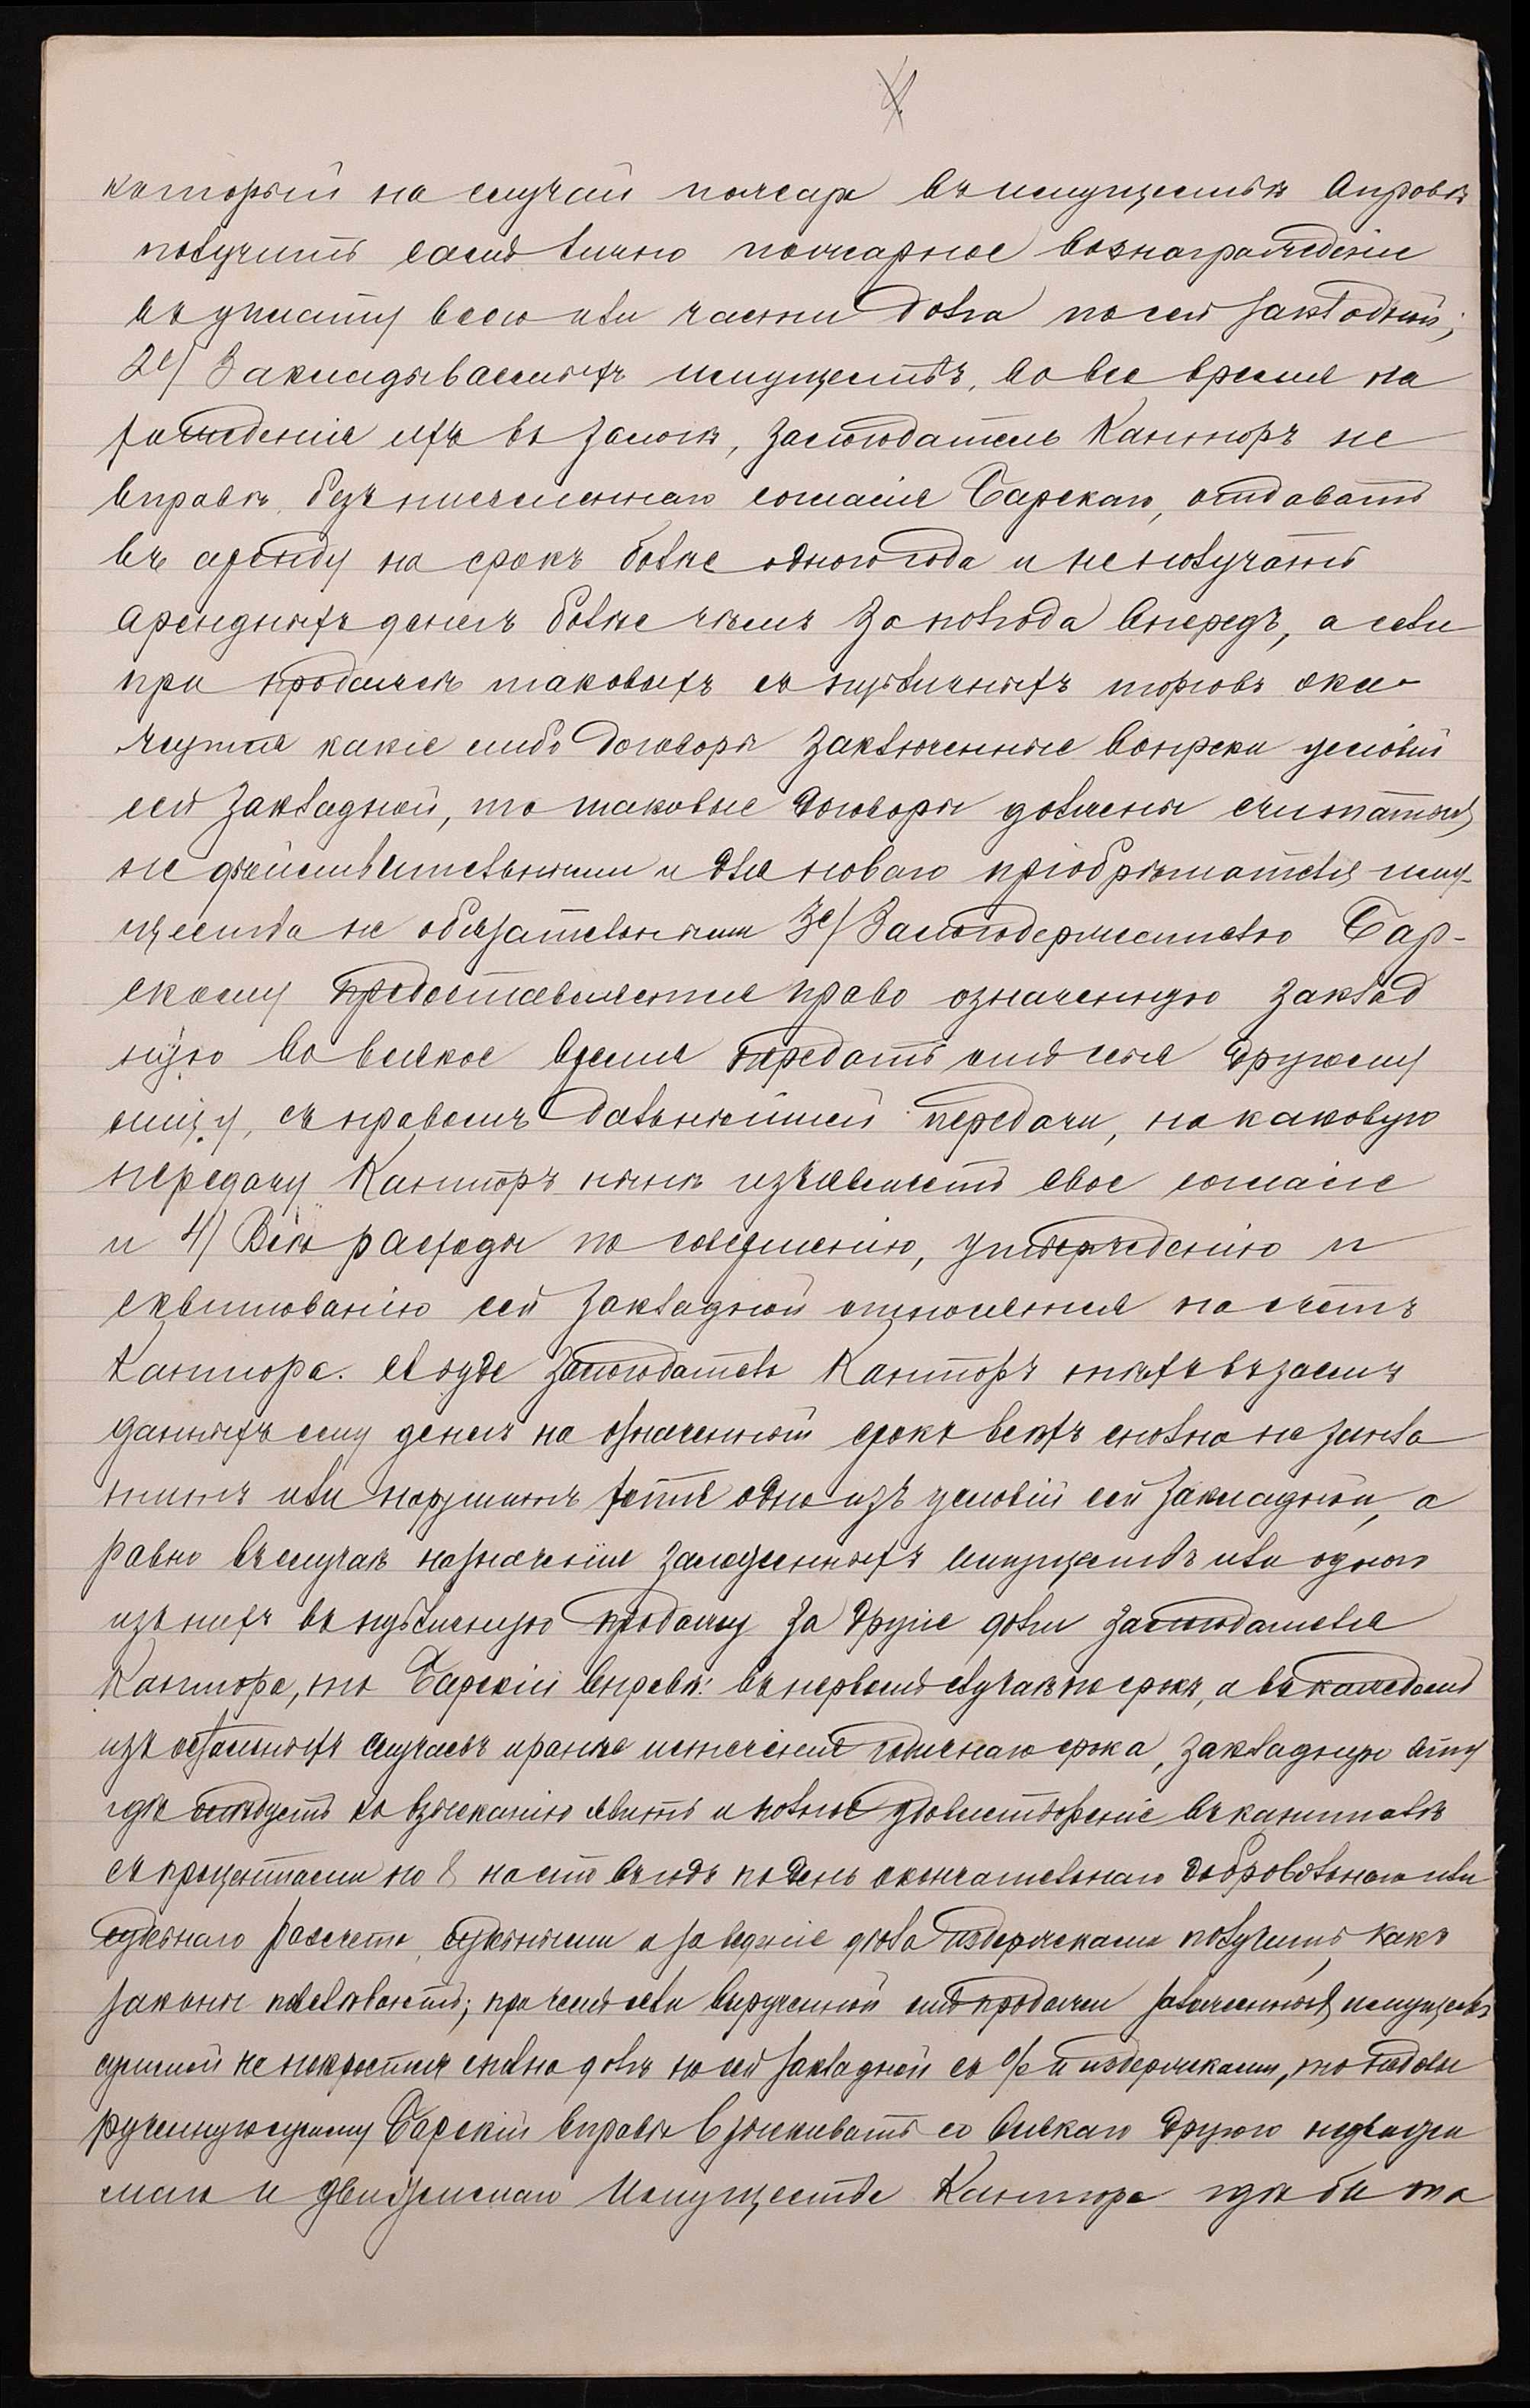 который на случай пожара въ имуществѣ вправѣ
получить самъ лично пожарное вознагражденіе
въ уплату всего или части долга по сей закладной;
2е/ Закладываемыхъ имуществъ, во все время на
хожденія ихъ въ залогѣ, залогодатель Канторъ не
вправѣ, безъ письменнаго согласія Барскаго, отдавать
въ аренду на срокъ болѣе одного года и не получать
арендныхъ денегъ болѣе чѣмъ за полгода впередъ, а если
при продажѣ таковыхъ съ публичныхъ торговъ ока-
жутся какіе либо договоры заключенные вопреки условій
сей закладной, то таковые договоры должны считаться
не дѣйствительными и для новаго пріобрѣтателя иму-
щества не обязательными 3е/ Залогодержателю Бар-
скому предоставляется право означенную заклад
ную во всякое время передать отъ себя другому
лицу, съ правомъ дальнѣйшей передачи, на каковую
передачу Канторъ нынѣ изъявляетъ свое согласіе
и 4/ Всѣ расходы по совершенію, утвержденію и
сквитованію сей закладной относятся на счетъ
Кантора. А буде залогодатель Канторъ тѣхъ въ заемъ
данныхъ ему денегъ на означенный срокъ всѣхъ сполна не запла
титъ или нарушитъ хотя одно изъ условій сей закладной, а
равно въ случаѣ назначенія заложенныхъ имуществъ или одного
изъ нихъ въ публичную продажу за другіе долги залогодателя
Кантора, то Барскій вправѣ: въ первомъ случаѣ по срокѣ, а въ каждомъ
изъ остальныхъ случаевъ и ранѣе истеченія годичнаго срока, закладную эту
гдѣ слѣдуетъ ко взысканію явить и полное удовлетвореніе въ капиталѣ
съ процентами по 8 на сто въ годъ по день окончательнаго добровольнаго или
судебнаго разсчета, судебными и за веденіе дѣла издержками получить, какъ
законы повелѣваютъ; при чемъ если вырученной отъ продажи заложенныхъ имуществъ
суммой не покроется сполна долгъ по сей закладной съ % и издержками, то недовы
рученную сумму Барскій вправѣ взыскивать со всякаго другого недвижи
маго и движимаго имущества Кантора гдѣ бы то